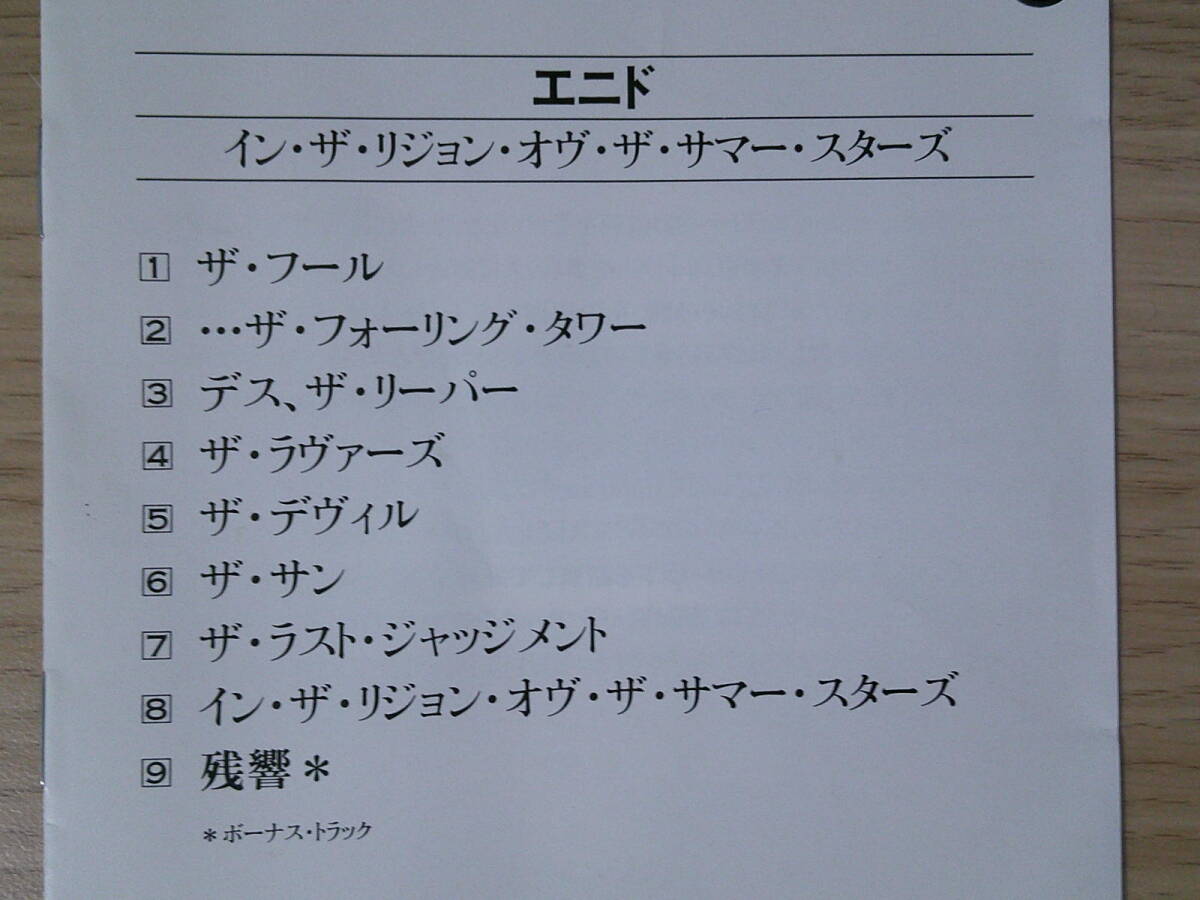 エニド
イン・ザ・リジョン・オヴ・ザ・サマー・スターズ
1 ザ・フール
2 …ザ・フォーリング・タワー
3 デス、ザ・リーパー
4 ザ・ラヴァーズ
5 ザ・デヴィル
6 ザ・サン
7 ザ・ラスト・ジャッジメント
8 イン・ザ・リジョン・オヴ・ザ・サマー・スターズ
9 残響＊
＊ボーナス・トラック